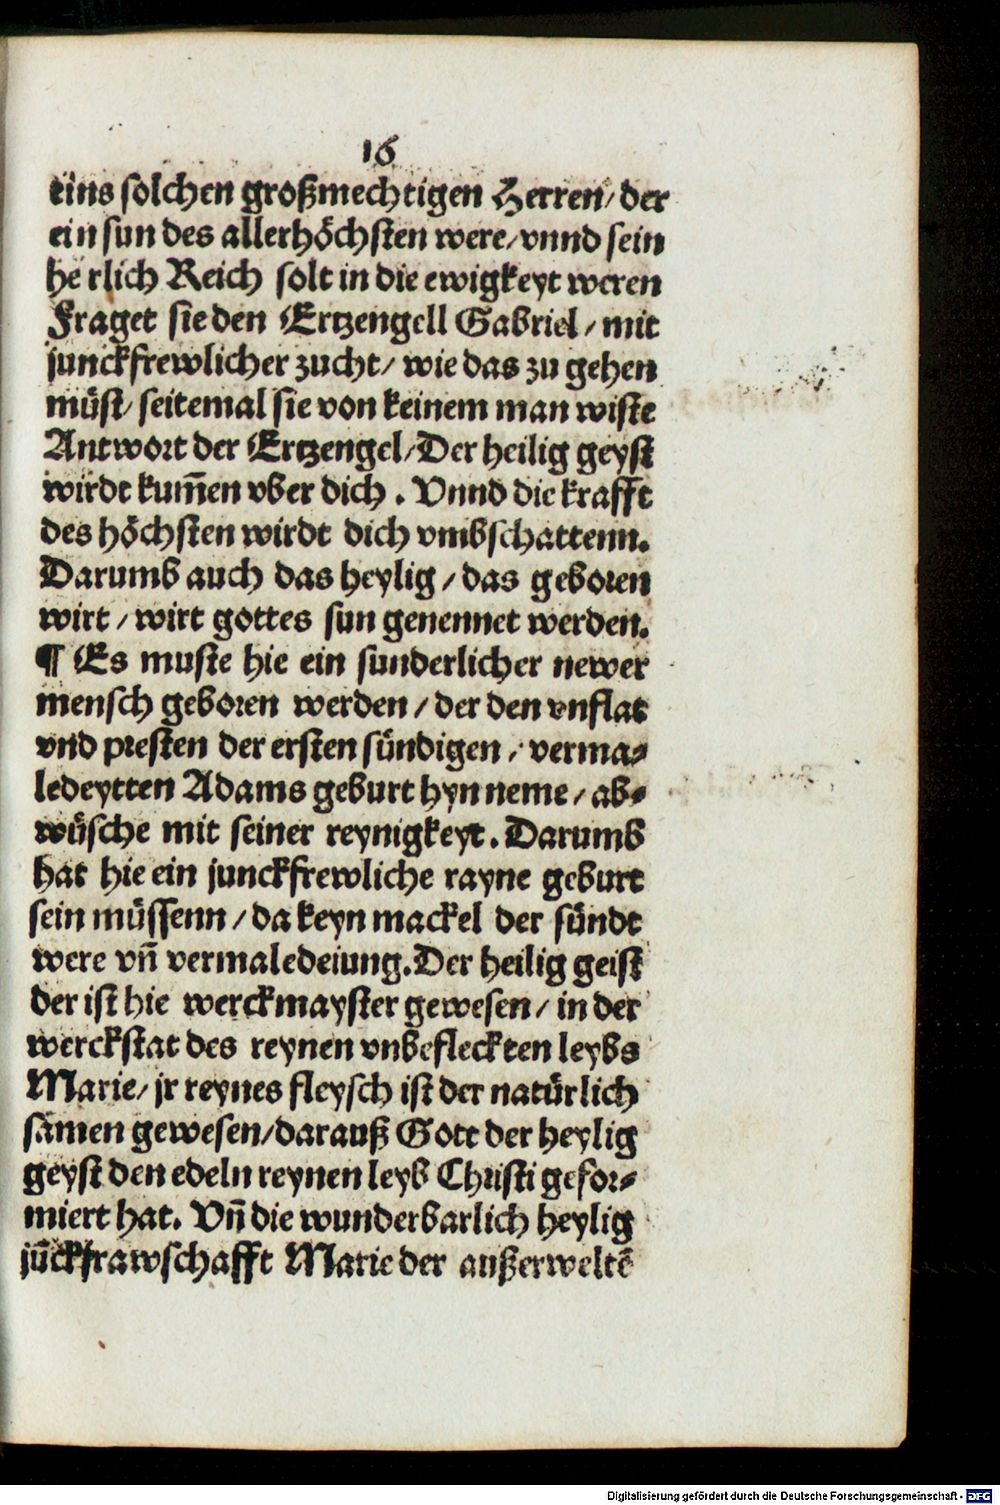 16
eins solchen großmechtigen Herren/ der
ein sun des allerhöchsten were/vnnd sein
he rlich Reich solt in die ewigkeyt weren
Fraget sie den Ertzengell Gabriel/ mit
junckfrewlicher zucht/ wie das zu gehen
müst/ seitemal sie von keinem man wiste
Antwort der Ertzengel/Der heilig geyst
wirdt kum̄en vber dich. Vnnd die krafft
des höchsten wirdt dich vmbschattenn.
Darumb auch das heylig/ das geboren
wirt/ wirt gottes sun genennet werden.
¶ Es muste hie ein sunderlicher newer
mensch geboren werden/ der den vnflat
vnd presten der ersten sündigen/ verma-
ledeytten Adams geburt hyn neme/ ab-
wüsche mit seiner reynigkeyt. Darumb
hat hie ein junckfrewliche rayne geburt
sein müssenn/ da keyn mackel der sündt
were vn̄ vermaledeiung. Der heilig geist
der ist hie werckmayster gewesen/ in der
werckstat des reynen vnbefleckten leybs
Marie/ jr reynes fleysch ist der natürlich
samen gewesen/darauß Gott der heylig
geyst den edeln reynen leyb Christi gefor-
miert hat. Vn̄ die wunderbarlich heylig
jūckfrawschafft Marie der außerweltē
Digitalisierung gefördert durch die Deutsche Forschungsgemeinschaft - DFG